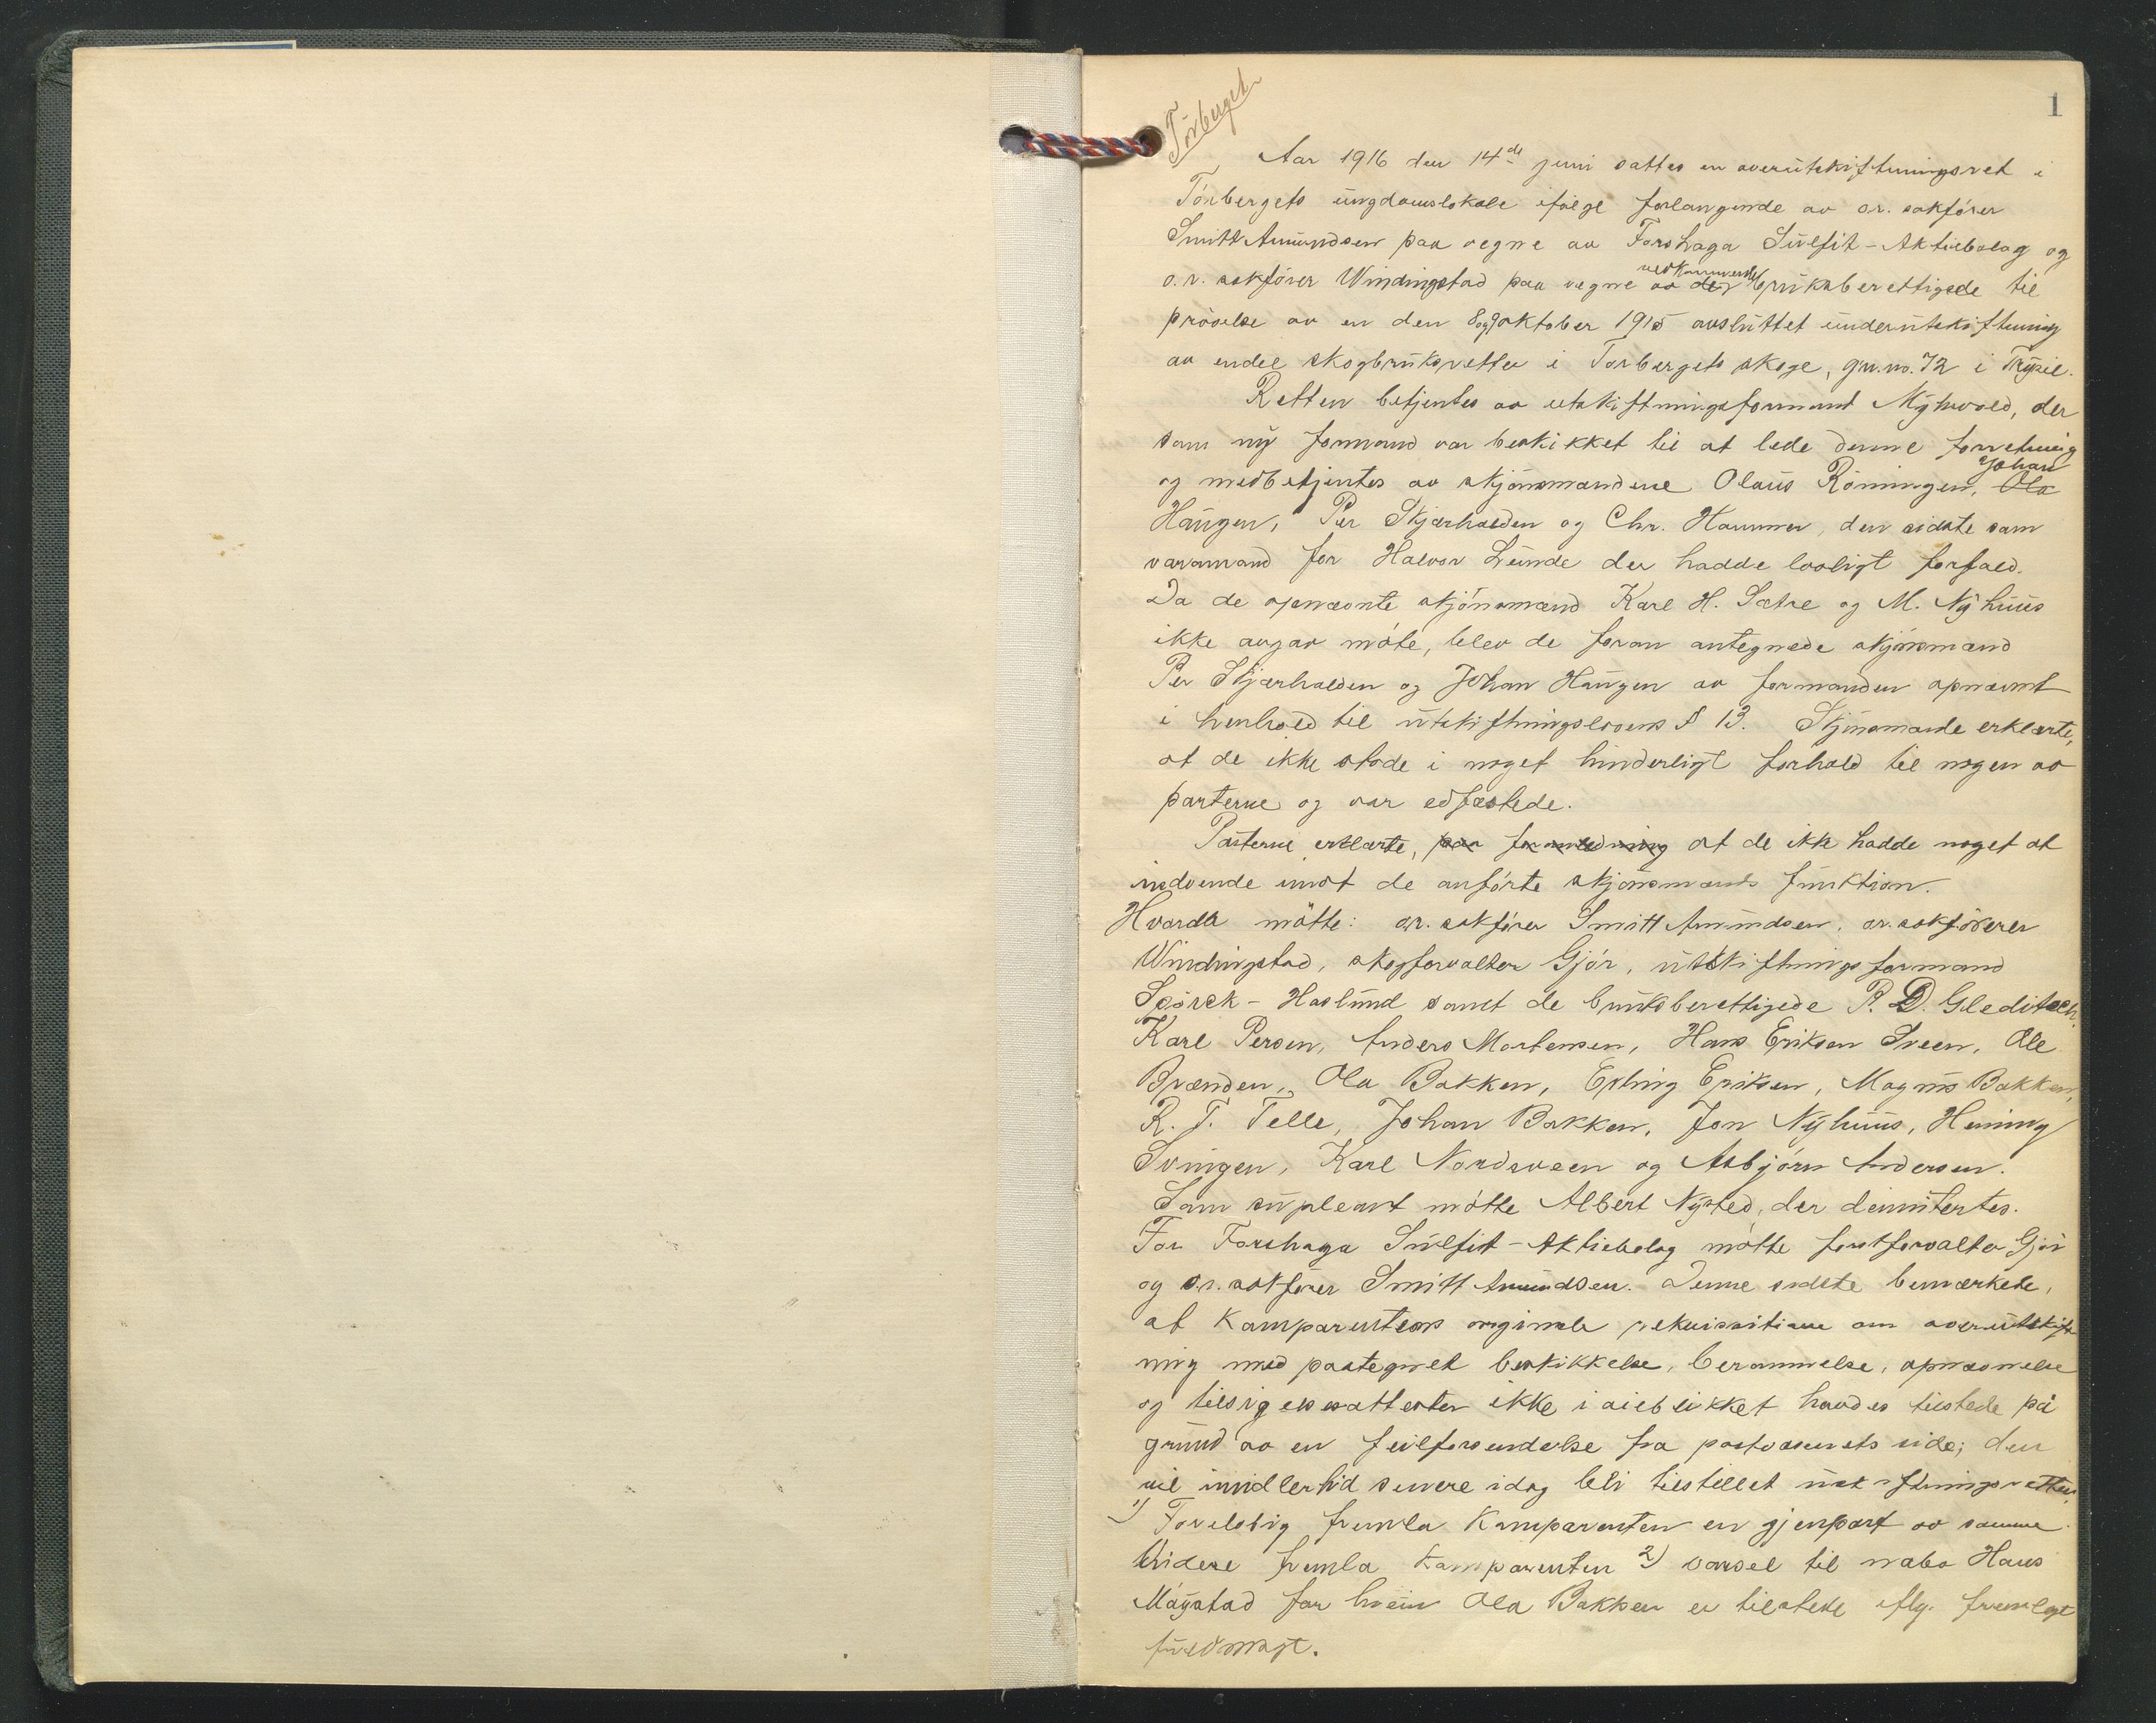 1
Törberget
Aar 1916 den 14de juni sattes en overutskiftningsret i
Törbergets ungdomslokale ifølge forlangende av o.r. sakfører
Smitt Amundsen paa vegne av Forshaga Sulfit-Aktiebolag og
o.r. sakfører Windingstad paa vegne av de vedkommende bruksberettigede til
prøvelse av en den 8 og 9 oktober 1915 avsluttet underutskiftning
av endel skogbruksretter i Torbergets skoge, gr.no. 72 i Trysil.
Retten betjentes av utskiftningsformand Myhrvold, der
som ny formand var beskikket til at lede denne forretning
og medbetjentes av skjønsmændene Olaus Röningen, Ola Johan
Haugen, Per Skjærholden og Chr. Hammer, den sidste som
varamand for Halvor Lunde der hadde lovligt forfald.
Da de opnævnte skjønsmænd Karl H. Sætre og M. Nyhuus
ikke avgav møte, blev de foran antegnede skjønsmænd
Per Skjærholden og Johan Haugen av formanden opnævnt
i henhold til utskiftningslovens § 13. Skjønsmænde erklærte,
at de ikke stode i noget hinderligt forhold til nogen av
parterne og var edfæstede.
Parterne erklærte, paa foranledning at de ikke hadde noget at
indvende imot de anførte skjønsmænds funktion.
Hvorda møtte: o.r. sakfører Smitt Amundsen, o.r. sakförerer
Windingstad, skogforvalter Gjör, utskiftningsformand
Spörck-Haslund samt de bruksberettigede P. D. Gleditsch,
Karl Persen, Anders Mortensen, Hans Eriksen Sveen, Ole
Brænden, Ola Bakken, Erling Eriksen, Magnus Bakken,
R. T. Telle, Johan Bakken, Jon Nyhuus, Heming
Svingen, Karl Nordsveen og Asbjørn Andersen.
Som supleant møtte Albert Nysted, der dimitertes.
For Forshaga Sulfit-Aktiebolag møtte forstforvalter Gjör
og o.r. sakfører Smitt Amundsen. Denne sidste bemærkede,
at Komparentens originale rekvisitione om overutskift-
ning med paategnet beskikkelse, berammelse, opnævnelse
og tilsigelsesattester ikke i øieblikket havdes tilstede på
grund av en feilforsendelse fra postvæsenets side; den
vil imidlertid senere idag bli tilstillet utskiftningsretten.
1) Foreløbig fremla Komparenten en gjenpart av samme.
Videre fremla Komparenten 2) varsel til nabo Hans
Møystad for hvem Ola Bakken er tilstede iflg. fremlagt
fuldmagt.